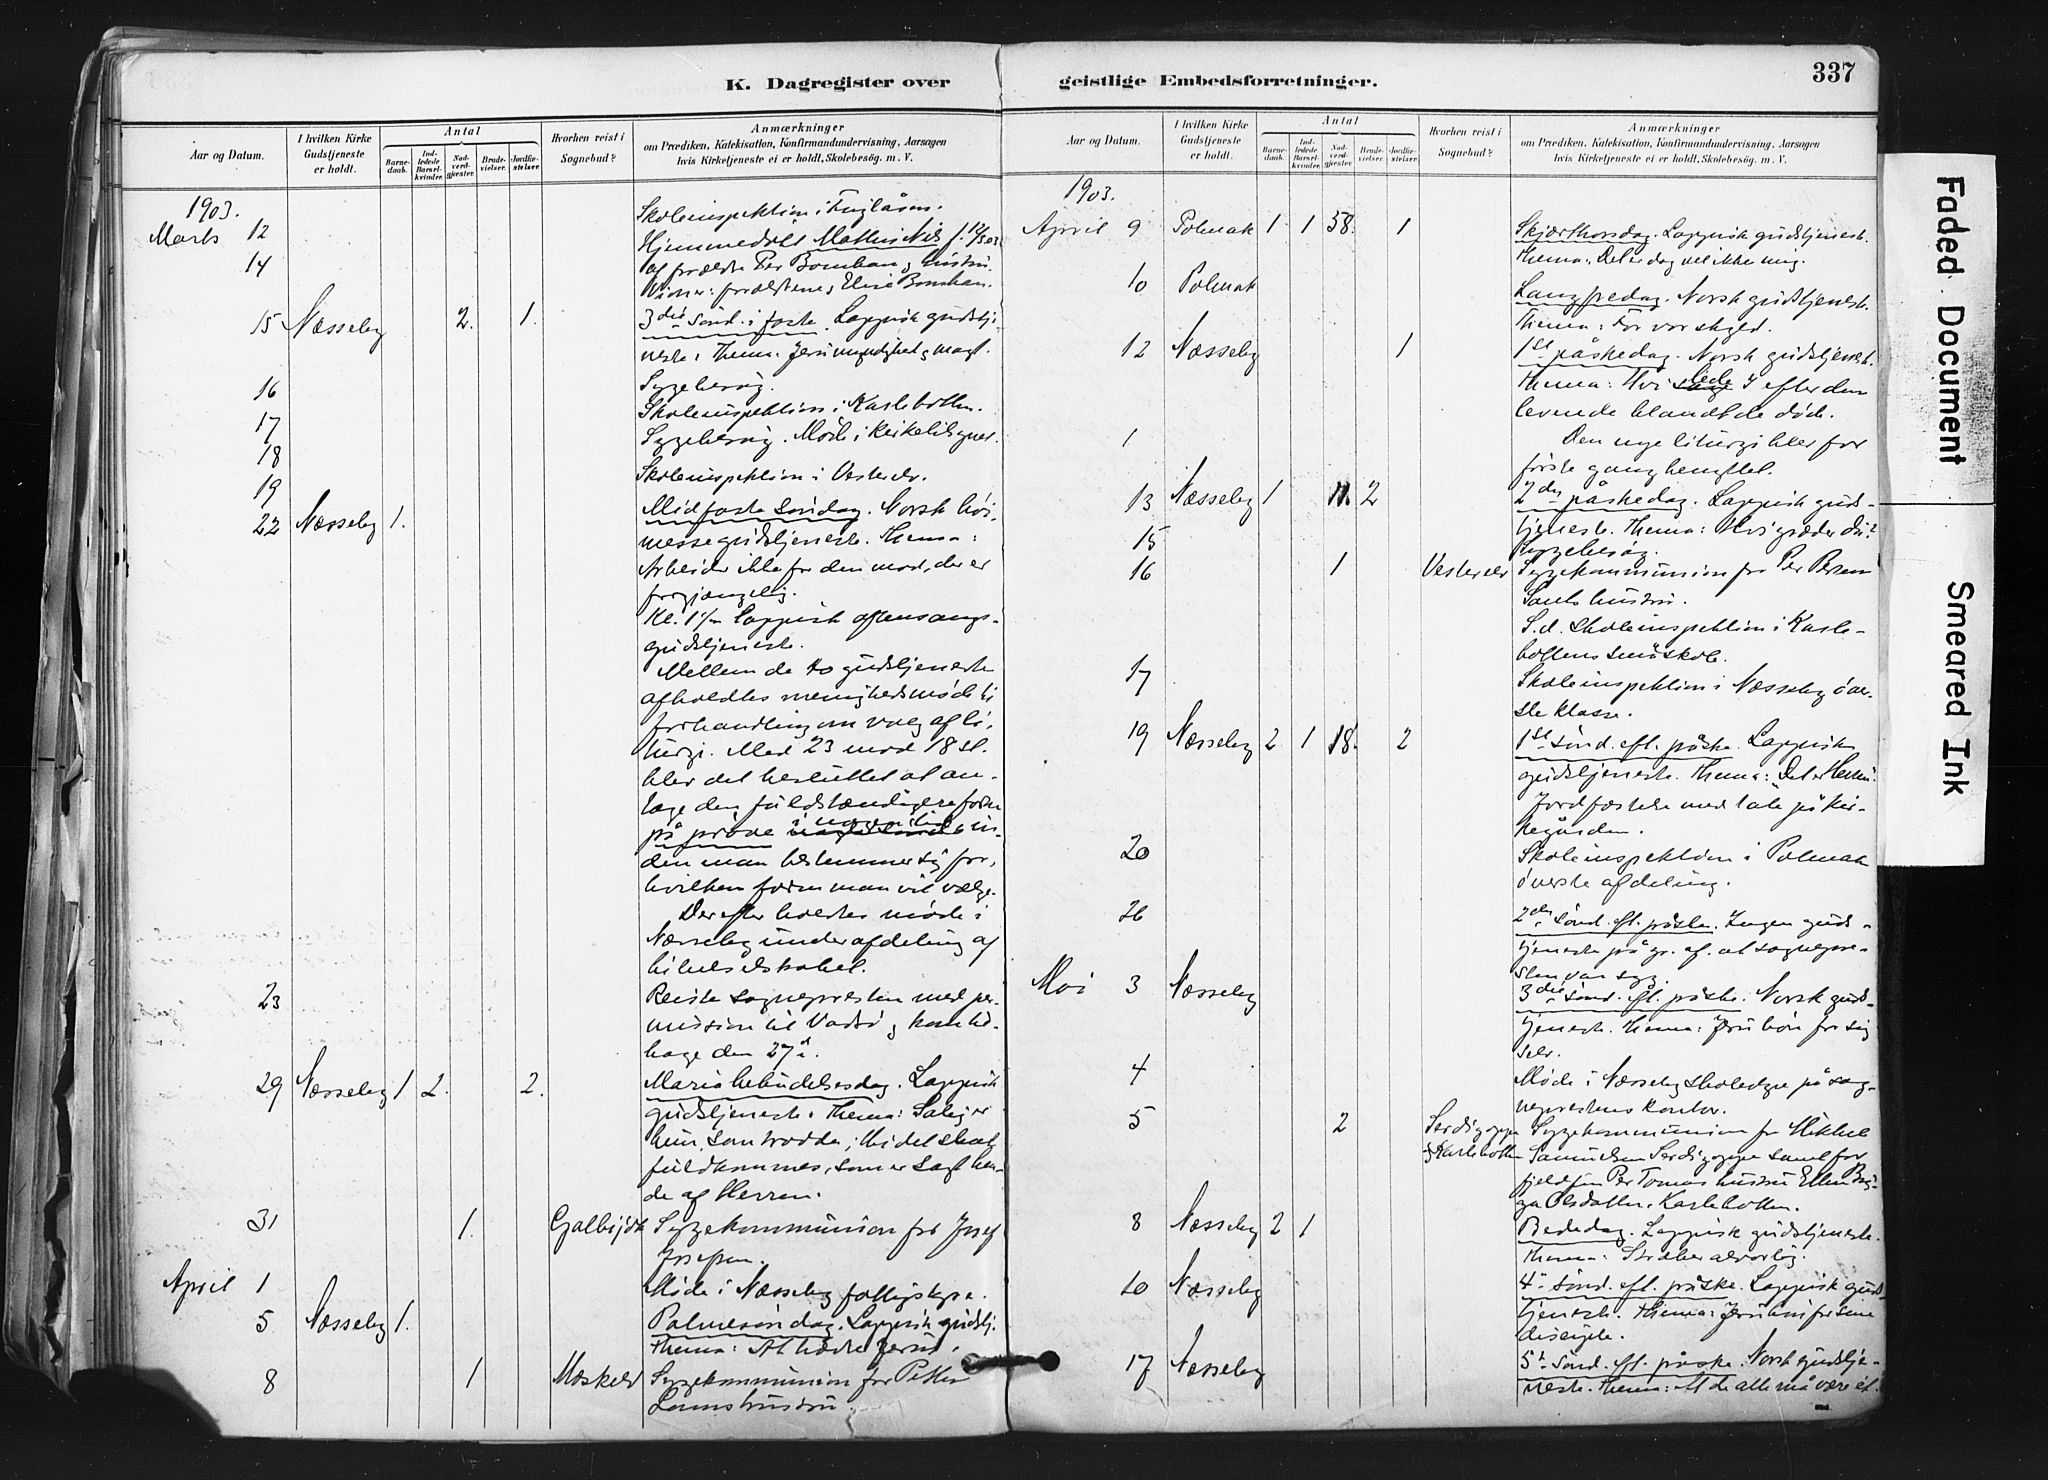 K. Dagregister over
Aar og Datum.
I hvilken Kirke Gudstjeneste er holdt.
Antal
Barnedaab.
Indledede Barselkvinder.
Nadverdgjæster.
Brudevielser.
Jordfæstelser.
Hvorhen reist i Sognebud?
Anmærkninger
om Prædiken, Katekisation, Konfirmandundervisning, Aarsagen
hvis Kirketjeneste ei er holdt, Skolebesøg. m. V.
1903.
Marts 12 Skoleinspektion i
14 Hjemmedøbt Mathis Nils f.
af forældre Per Bomban & hustru.
15 Næsseby 2. 1. 3die sønd. i faste. Lappisk gudstje-
neste. Thema: Jesu myndighet & magt.
16 Sygebesøg.
17 Skoleinspektion i Karlebotten.
18 Sygebesøg. Møde i
19 Skoleinspektion i Vesterelv.
22 Næsseby 1. Midfaste søndag. Norsk høi-
messegudstjeneste. Thema:
Arbeider ikke for den mad, der er
forgjængelig.
Kl. Lappisk aftensangs-
gudstjeneste.
Mellem de to gudstjenester
afholdtes menighedsmøde til
forhandling om valg af li-
turgi. Med 23 mod 18 st.
blev det besluttet at an-
tage den fuldstændigere form
på prøve i nogen tid in-
den man bestemmer sig for,
hvilken form man vil vælge.
Derefter holdtes møde i
Næsseby underafdeling af
bibelselskabet.
23 Reiste sognepresten med per-
mission til Vadsø & kom til-
bage den 27de.
29 Næsseby 1 2. 2. Maria bebudelsesdag. Lappisk
gudstjeneste. Thema: Salig er
hun, som trodde; thi det skal
fuldkommes, som er sagt hen-
de af Herren.
31 1. Galbijok Sygekommunion for Josef
Josefsen.
April 1 Møde i Næsseby fattigstyre.
5 Næsseby 1. Palmesøndag. Lappisk gudstj.
Thema: At hædre Jesus.
8 1 Moskelv Sygekommunion for Petter
hustru.
geistlige Embedsforretninger.
337
Aar og Datum.
I hvilken Kirke Gudstjeneste er holdt.
Antal
Barnedaab.
Indledede Barselkvinder.
Nadverdgjæster.
Brudevielser.
Jordfæstelser.
Hvorhen reist i Sognebud?
Anmærkninger
om Prædiken, Katekisation, Konfirmandundervisning, Aarsagen
hvis Kirketjeneste ei er holdt, Skolebesøg. m. V.
1903.
April 9 Polmak 1 1 58. 1 Skjærthorsdag. Lappisk gudstjeneste.
Thema: Det er dog vel ikke mig.
10 Polmak Langfredag. Norsk gudstjeneste.
Thema: For vor skyld.
12 Næsseby 1 1ste påskedag. Norsk gudstjeneste.
Thema: Hvi lede I efter den
levende blandt de døde.
1 Den nye liturgi blev for
første gang benyttet.
13 Næsseby 1 11. 2 2den påskedag. Lappisk guds-
tjeneste. Thema: Hvi græder du?
15 Sygebesøg.
16 1 Vesterelv Sygekommunion for Per Persen
hustru.
S.d. skoleinspektion i Karle-
bottens småskole.
17 Skoleinspektion i Næsseby øver-
ste klasse.
19 Næsseby 2 1 18. 2 1ste sønd. eft. påske. Lappisk
gudstjeneste. Thema: Det er Herren.
Jordfæstelse med tale på kir-
kegården.
20 Skoleinspektion i Polmak
øverste afdeling.
26 2den sønd. eft. påske. Ingen guds-
tjeneste på gr. af. at sognepre-
sten var syg.
Mai 3 Næsseby 3die sønd. eft. påske. Norsk guds-
tjeneste. Thema: Jesu bøn for sig
selv.
4 Møde i Næsseby skolestyre på sog-
neprestens kontor.
5 2 & Karlebotten Sygekommunion for Mikkel
Samuelsen samt for
fjeldfin Per Tomas hustru Ellen
Olsdatter. Karlebotten.
8 Næsseby 2 1 Bededag. Lappisk gudstjeneste.
Thema: Stræber alvorlig.
10 Næsseby 4de sønd. eft. påske. Lappisk guds-
tjeneste. Thema: Jesu bøn for sine
disciple.
17 Næsseby 5te sønd. eft. påske. Norsk gudstje-
neste. Thema: At de alle må være ét.
Faded Document
Smeared Ink